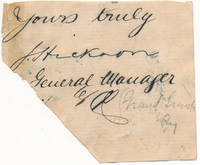 Yours truly
J Hickson
General Manager
Grand Trunk
Ry